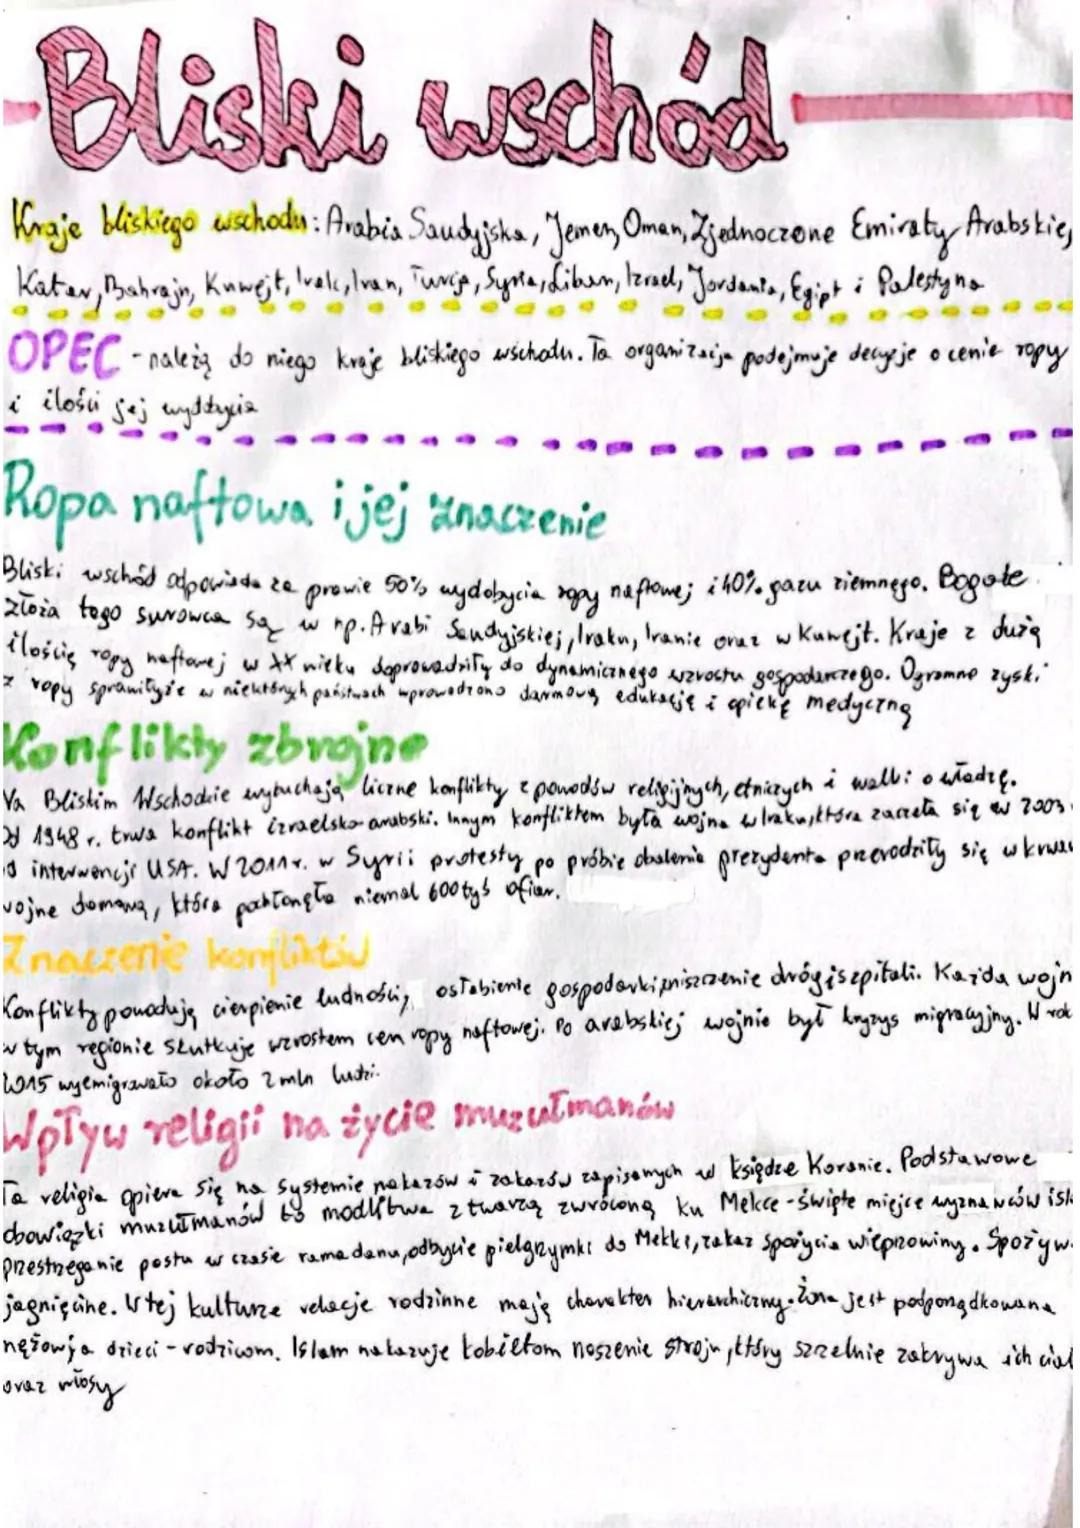 Bliski wschód
Kraje bliskiego wschodu: Arabia Saudyjska, Jemen, Oman, Zjednoczone Emiraty Arabskie,
Katar, Bahrajn, Kuwejt, Irak, Iran, Turcja, Syria, Liban, Izrael, Jordania, Egipt i Palestyna
OPEC - należą do niego kraje bliskiego wschodu. Ta organizacja podejmuje decyzje o cenie ropy
i ilości jej wydobycia
Ropa naftowa i jej znaczenie
Bliski wschód odpowiada za prawie 50% wydobycia ropy naftowej i 40% gazu ziemnego. Bogate
złoża tego surowca są w np. Arabi Saudyjskiej, Iraku, Iranie oraz w Kuwejt. Kraje z dużą
ilością ropy naftowej w XX wieku doprowadziły do dynamicznego wzrostu gospodarczego. Ogromne zyski
z ropy sprawiły że w niektórych państwach wprowadzono darmową edukację i opiekę medyczną
Konflikty zbrojne
Na Bliskim Wschodzie wybuchają liczne konflikty z powodów religijnych, etnicznych i walki o władzę.
Od 1948 r. trwa konflikt izraelsko-arabski. Innym konfliktem była wojna w Iraku, która zaczęła się w 2003
interwencji USA. W 2011r. w Syrii protesty po próbie obalenia prezydenta przerodziły się w
wojne domową, która pochłonęła niemal 600 tyś ofiar.
Znaczenie konfliktów
Konflikty powodują cierpienie ludności, osłabienie gospodarki, zniszczenie dróg i szpitali. Każda wojn
w tym regionie skutkuje wzrostem cen ropy naftowej. Po arabskiej wojnie był kryzys migracyjny. W rok
2015 wyemigrowało około 2 mln ludzi.
Wpływ religii na życie muzułmanów
Ta religia opiera się na systemie nakazów i zakazów zapisanych w księdze Koranie. Podstawowe
obowiązki muzułmanów to modlitwa z twarzą zwróconą ku Mekce - święte miejsce wyznawców isl
przestrzeganie postu w czasie ramadanu, odbycie pielgrzymki do Mekki, zakaz spożycia wieprzowiny. Spożyw
jagnięcine. W tej kulturze relacje rodzinne mają charakter hierarchiczny. Żona jest podporządkowana
mężowi, a dzieci - rodzicom. Islam nakazuje kobietom noszenie stroju, który szczelnie zakrywa ich ciał
oraz włosy